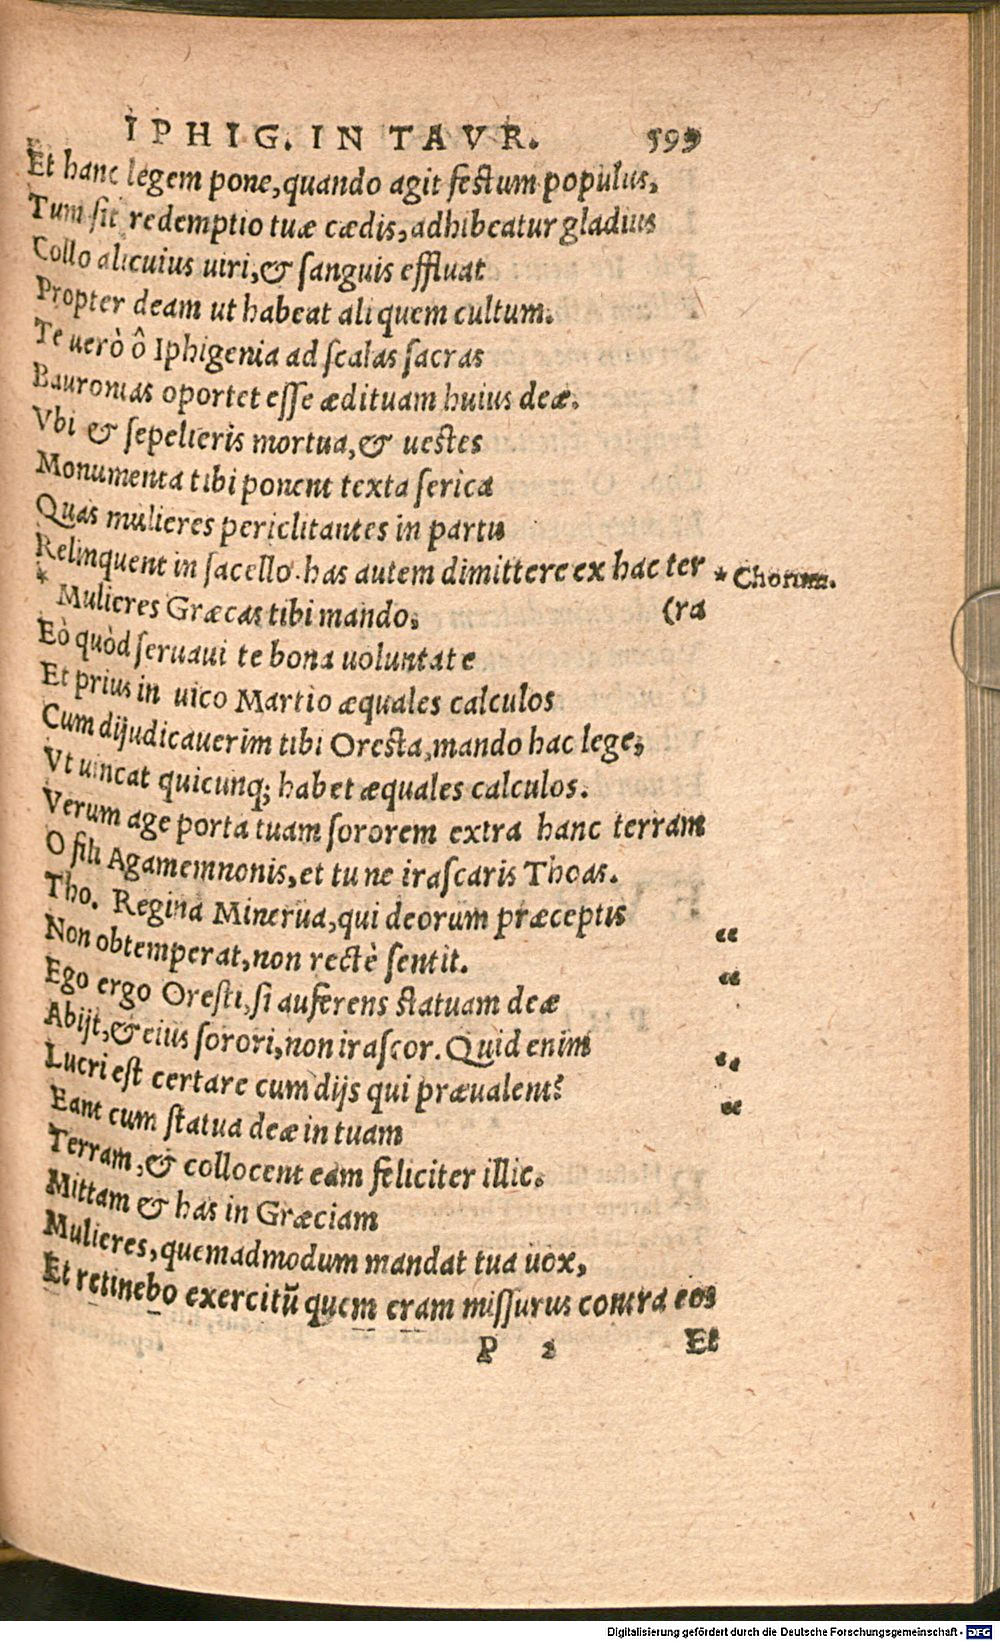 IPHIG. IN TAVR. 599
Et hanc legem pone, quando agit festum populus,
Tum sit redemptio tuæ cædis, adhibeatur gladius
Collo alicuius uiri, & sanguis effluat
Propter deam ut habeat aliquem cultum.
Te uerò ô Iphigenia ad scalas sacras
Bauronias oportet esse ædituam huius deæ.
Vbi & sepelieris mortua, & uestes
Monumenta tibi ponent texta serica
Quas mulieres periclitantes in partu
Relinquent in sacello. has autem dimittere ex hac ter * Chorum.
* Mulieres Græcas tibi mando, (ra
Eò quòd seruaui te bona uoluntate
Et prius in uico Martio æquales calculos
Cum dijudicauerim tibi Oresta, mando hac lege,
Vt uincat quicunq; habet æquales calculos.
Verum age porta tuam sororem extra hanc terram
O fili Agamemnonis, et tu ne irascaris Thoas.
Tho. Regina Minerua, qui deorum præceptis
Non obtemperat, non rectè sentit. “
Ego ergo Oresti, si auferens statuam deæ “
Abijt, & eius sorori, non irascor. Quid enim
Lucri est certare cum dijs qui præualent? “
Eant cum statua deæ in tuam “
Terram, & collocent eam feliciter illic.
Mittam & has in Græciam
Mulieres, quemadmodum mandat tua uox,
Et retinebo exercitũ quem eram missurus contra eos
P 2 Et
Digitalisierung gefördert durch die Deutsche Forschungsgemeinschaft - DFG